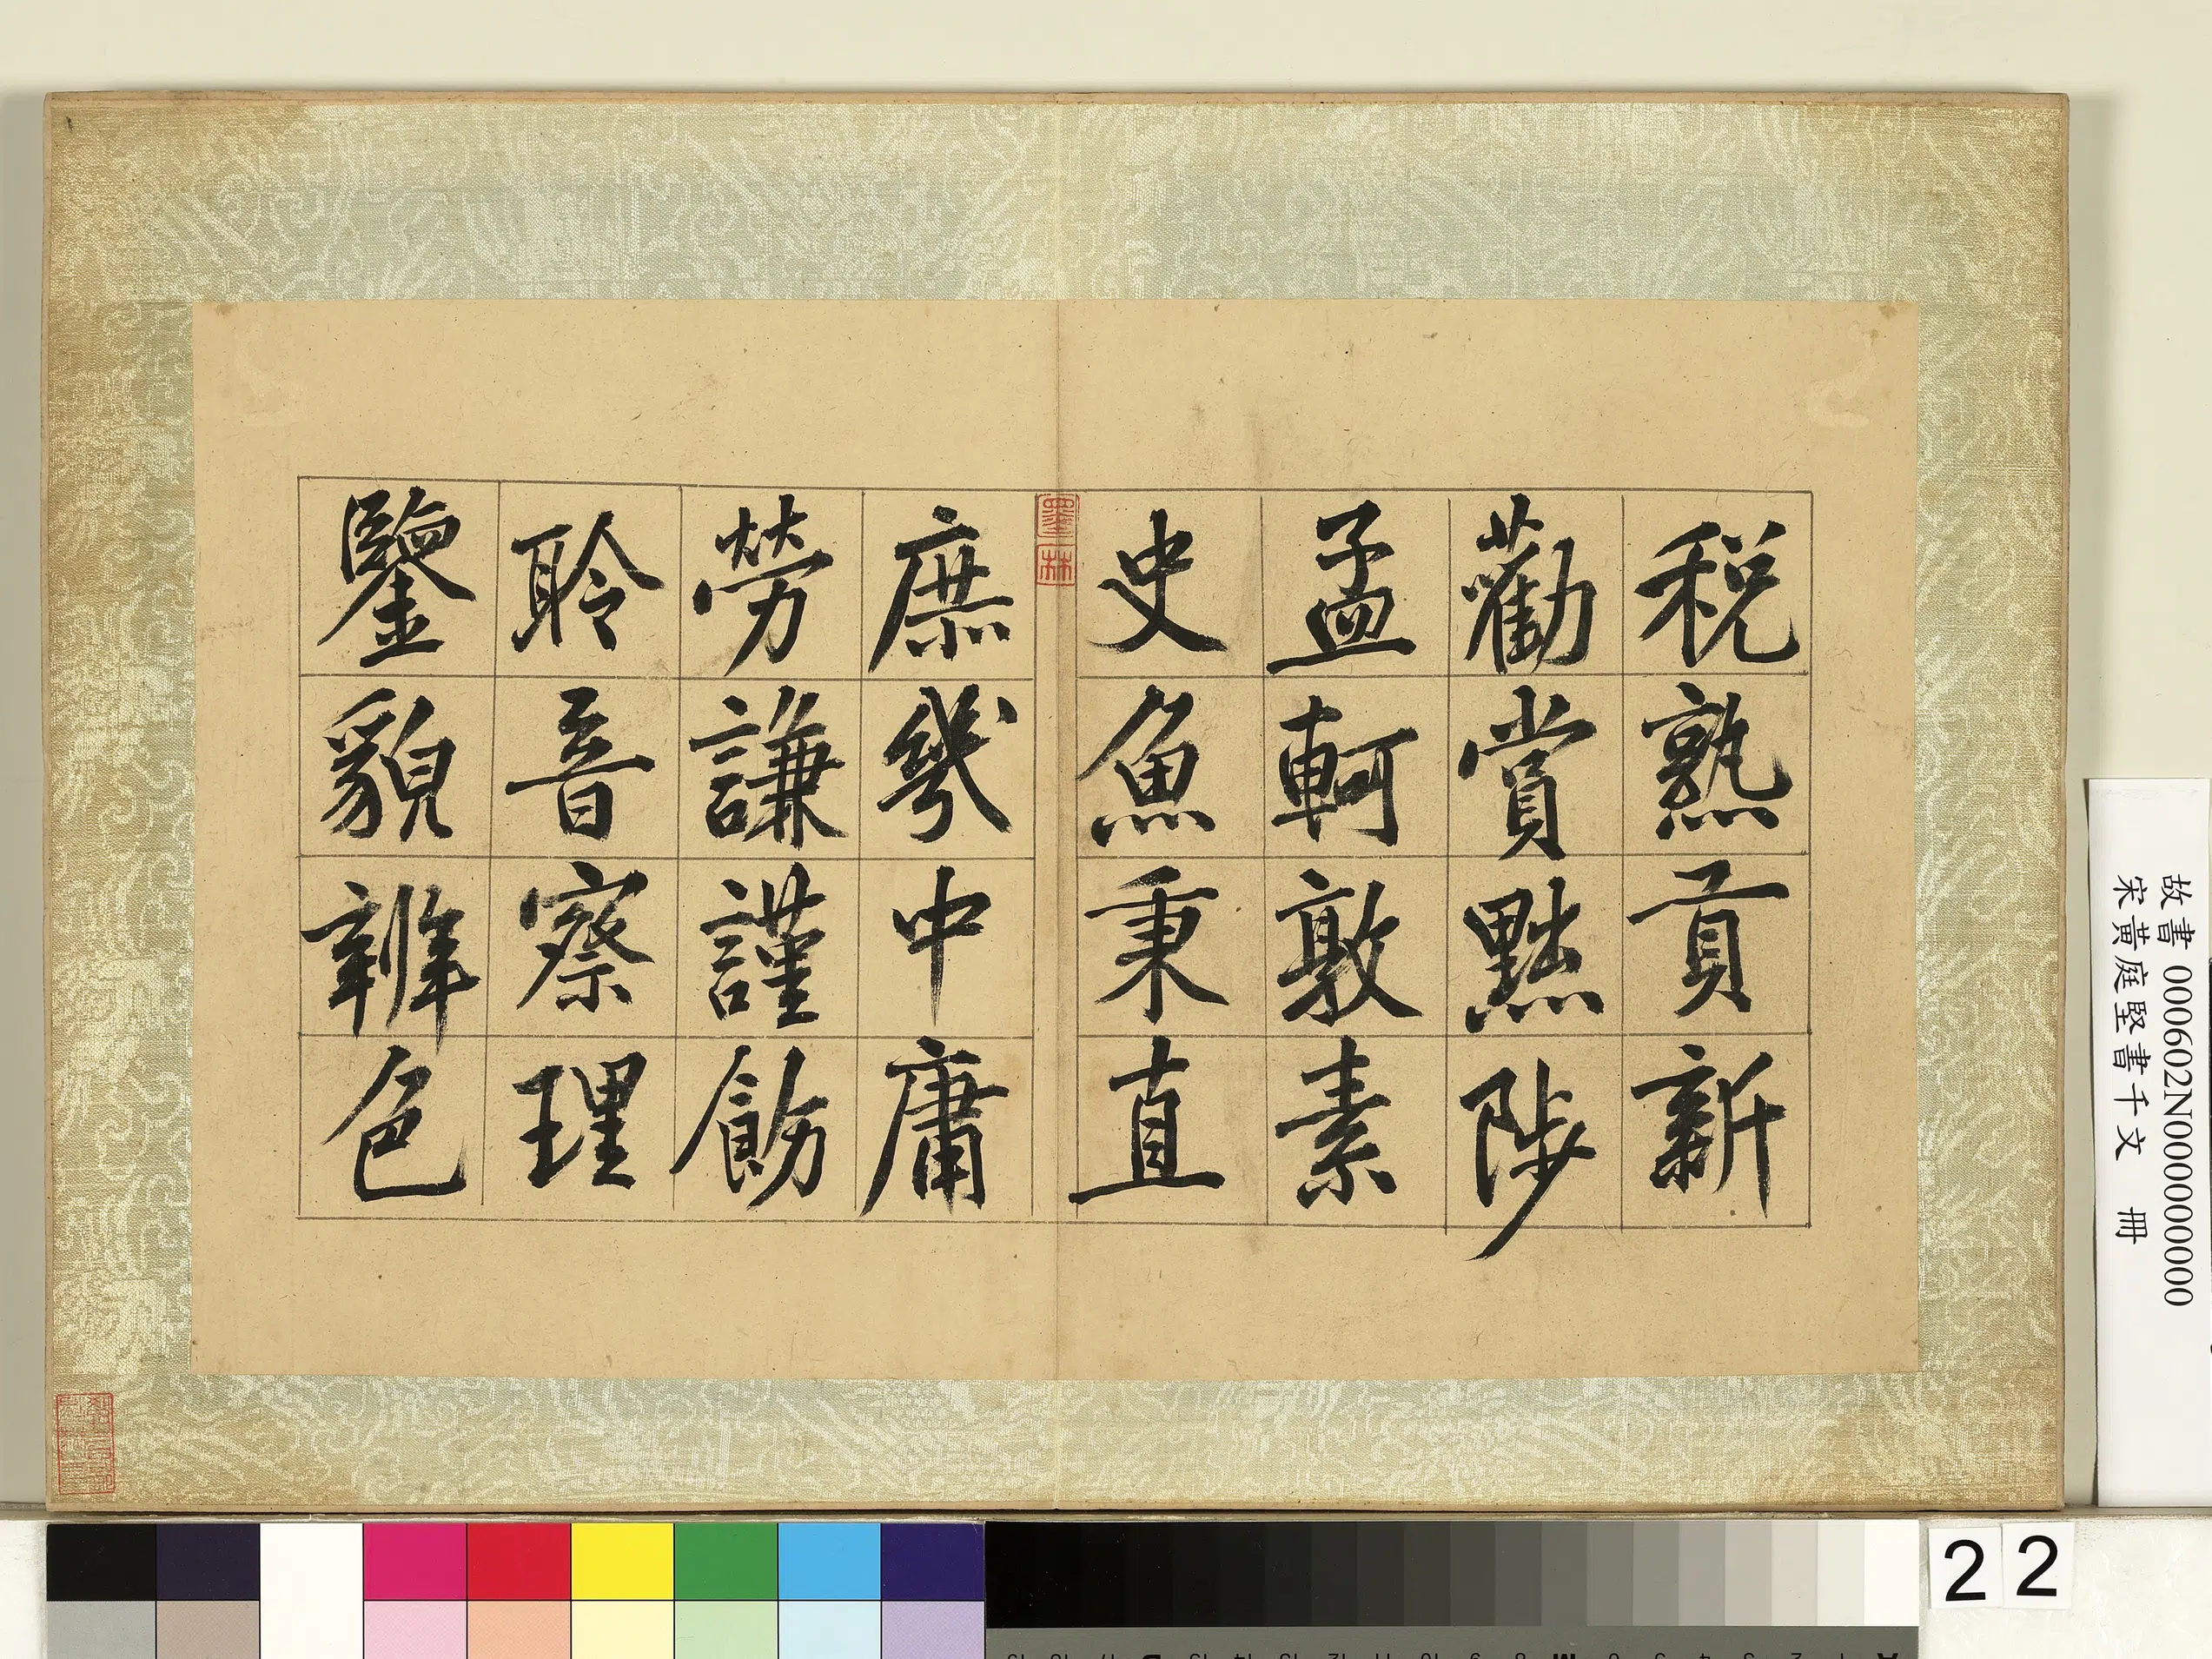 稅熟貢新
勸賞黜陟
孟軻敦素
史魚秉直
庶幾中庸
勞謙謹勅
聆音察理
鑒貌辨色
墨林
故書 000602N000000000
宋黃庭堅書千文 冊
22